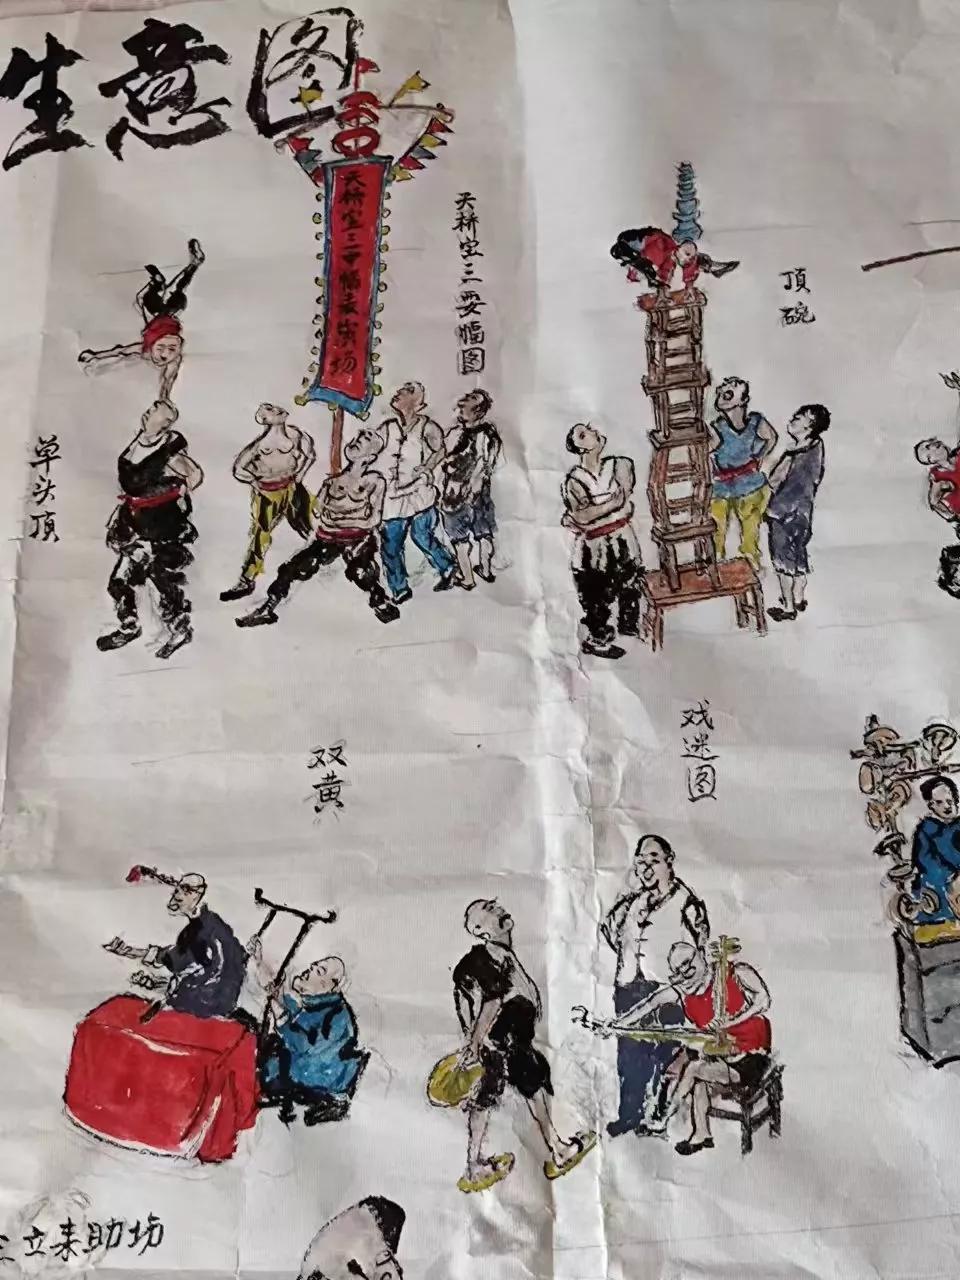 生意图
天桥宝三中幡表演场
天桥宝三耍幡图
頂碗
单头顶
戏迷图
双黄
立来助场